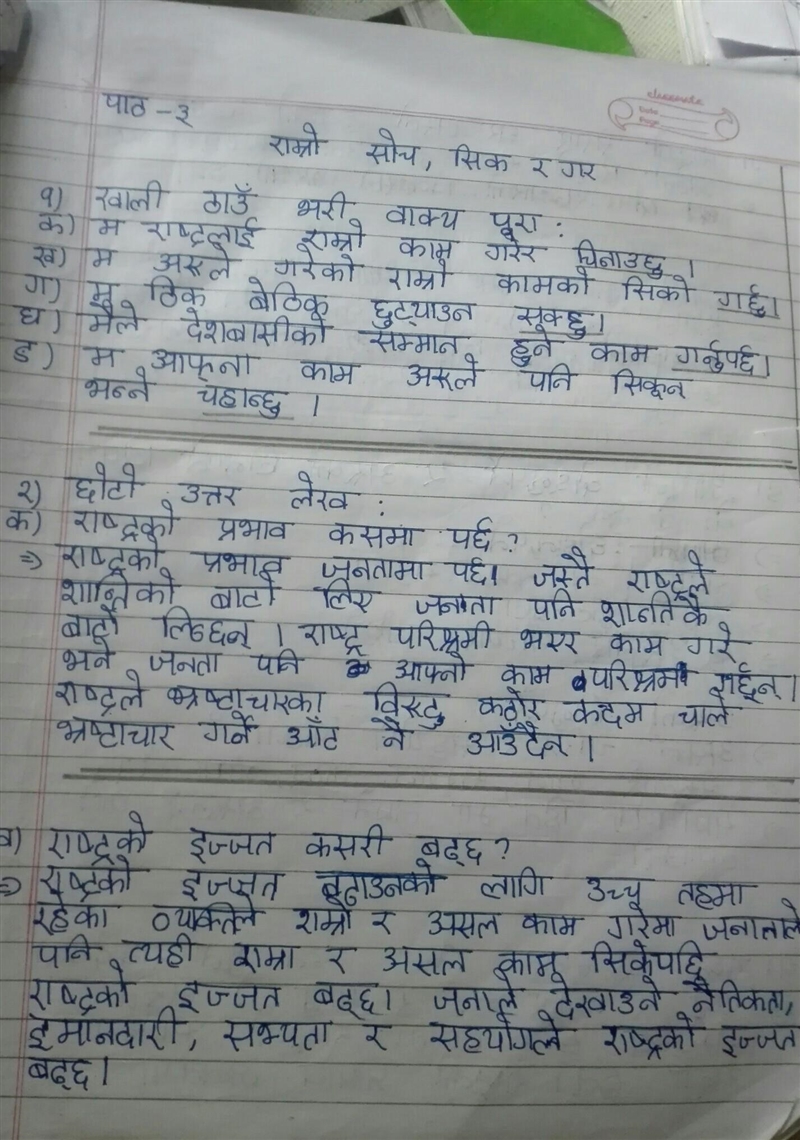 classmate
Date
Page
पाठ -३
राम्रो सोच, सिक र गर
१) खाली ठाउँ भरी वाक्य पूरा :
क) म राष्ट्रलाई राम्रो काम गरेर चिनाउछु।
ख) म अरूले गरेको राम्रो कामको सिको गर्छु।
ग) म ठिक बेठिक छुट्याउन सक्छु।
घ) मैले देशबासीको सम्मान हुने काम गर्नुपर्छ।
ङ) म आफ्ना काम अरूले पनि सिकून्
भन्ने चहान्छु।
२) छोटो उत्तर लेख :
क) राष्ट्रको प्रभाव कसमा पर्छ?
⇒ राष्ट्रको प्रभाव जनतामा पर्छ। जस्तै राष्ट्रले
शान्तिको बाटो लिए जनता पनि शान्तिकै
बाटो लिन्छन्। राष्ट्र परिश्रमी भएर काम गरे
भने जनता पनि आफ्नो काम परिश्रम गर्छन्।
राष्ट्रले भ्रष्टाचारका विरुद्ध कठोर कदम चाले
भ्रष्टाचार गर्ने आँट नै आउँदैन।
ख) राष्ट्रको इज्जत कसरी बढ्छ?
⇒ राष्ट्रको इज्जत बढाउनको लागि उच्च तहमा
रहेका व्यक्तिले राम्रो र असल काम गरेमा जनाताले
पनि त्यही राम्रा र असल काम सिकेपछि
राष्ट्रको इज्जत बढ्छ। जनाले देखाउने नैतिकता,
इमानदारी, सभ्यता र सहयोगले राष्ट्रको इज्जत
बढ्छ।